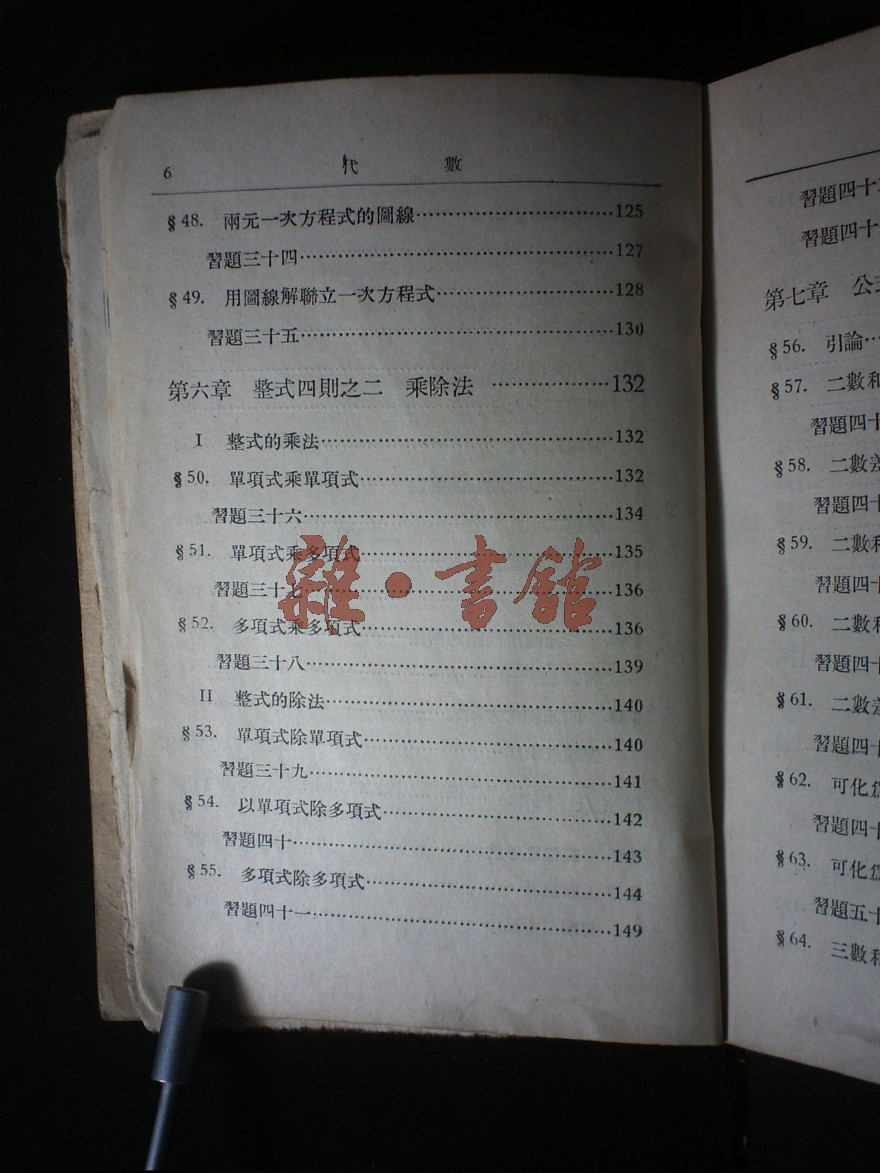 6 代 數
§48. 兩元一次方程式的圖線……125
習題三十四……127
§49. 用圖線解聯立一次方程式……128
習題三十五……130
第六章 整式四則之二 乘除法……132
I 整式的乘法……132
§50. 單項式乘單項式……132
習題三十六……134
§51. 單項式乘多項式……135
習題三十七……136
§52. 多項式乘多項式……136
習題三十八……139
II 整式的除法……140
§53. 單項式除單項式……140
習題三十九……141
§54. 以單項式除多項式……142
習題四十……143
§55. 多項式除多項式……144
習題四十一……149
雜·書館
習題四十
習題四十
第七章 公
§56. 引論…
§57. 二數和
習題四十
§58. 二數差
習題四十
§59. 二數和
習題四十
§60. 二數和
習題四十
§61. 二數差
習題四十
§62. 可化為
習題四十
§63. 可化為
習題五十
§64. 三數和